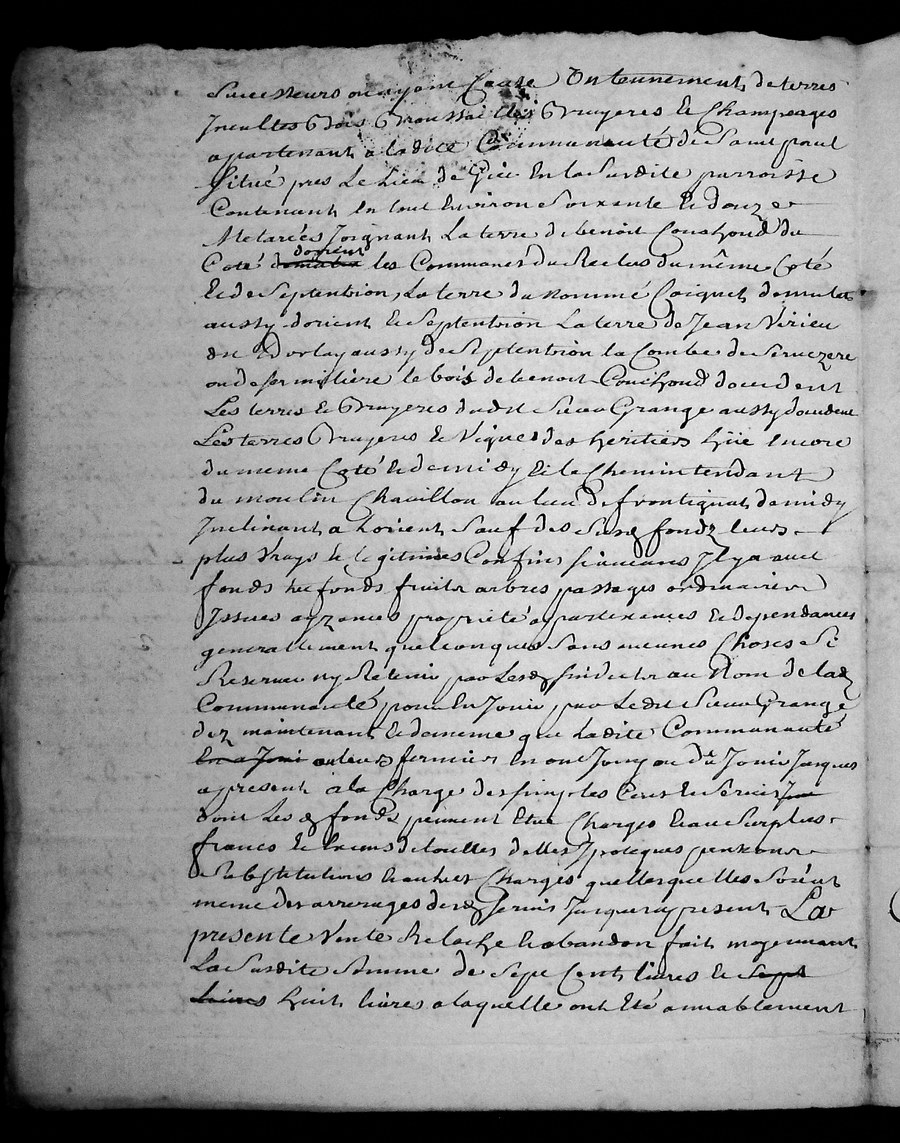 Successeurs ou ayant Cause Un tennement de terres
Incultes Bois Broussailles Bruyeres et Champeages
apartenant a ladite Communauté de Saint paul
Situé pres Le Lieu de En la Susdite parroisse
Contenant En tout Environ Soixante et douze
Meterées Joignant La terre de benoit Couchoud du
Coté dorient les Communes du Reclus du même Coté
Et de Septention, La terre du nommé Coignet
aussy dorient et Septention La terre de Jean Virieu
dit aussy de Septention la Combe de
ou le bois de benoit Couchoud doccident
Les terres et Bruyeres dudit Sieur Grange aussy doccident
Les terres Bruyeres et Vignes des heritiers hÿe Encore
du meme Coté Et de midy Et le Chemin tendant
du moulin Chavillon au lieu de frontignat de midy
Inclinant a Lorient Sauf des Susd fondz leurs
plus Vrays et legitimes Confins Si aucans Il y a avec
fonds tresfonds fruits arbres passages ordinaires
Issues ayzances proprieté apartenances et dependances
generallement quelconques Sans aucunes Choses Se
Reserver ny Retenir par Lesd Sindicts au Nom de lad
Communauté pour En Jouir par Ledit Sieur Grange
dez maintenant Et de meme que Ladite Communauté
En a Joui ou leurs fermiers En ont Jouy ou dû Jouir Jusques
apresent a la Charge des simples Cens Et Servis
dont Lesd fonds peuvent Etre Chargés Et au Surplus
francs Et quittes de touttes dettes Ipoteques pensions
Substitutions Et autres Charges quelles quelles Soient
meme des arrerages desd Servis Jusques apresent La
presente Vente Relache Et abandon fait moyennant
La Susdite Somme de Sept Cent livres Et Sept
livres huit livres a laquelle ont Eté amiablement